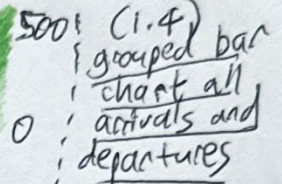 500 (1.4)
grouped bar
chart all
0 arrivals and
departures